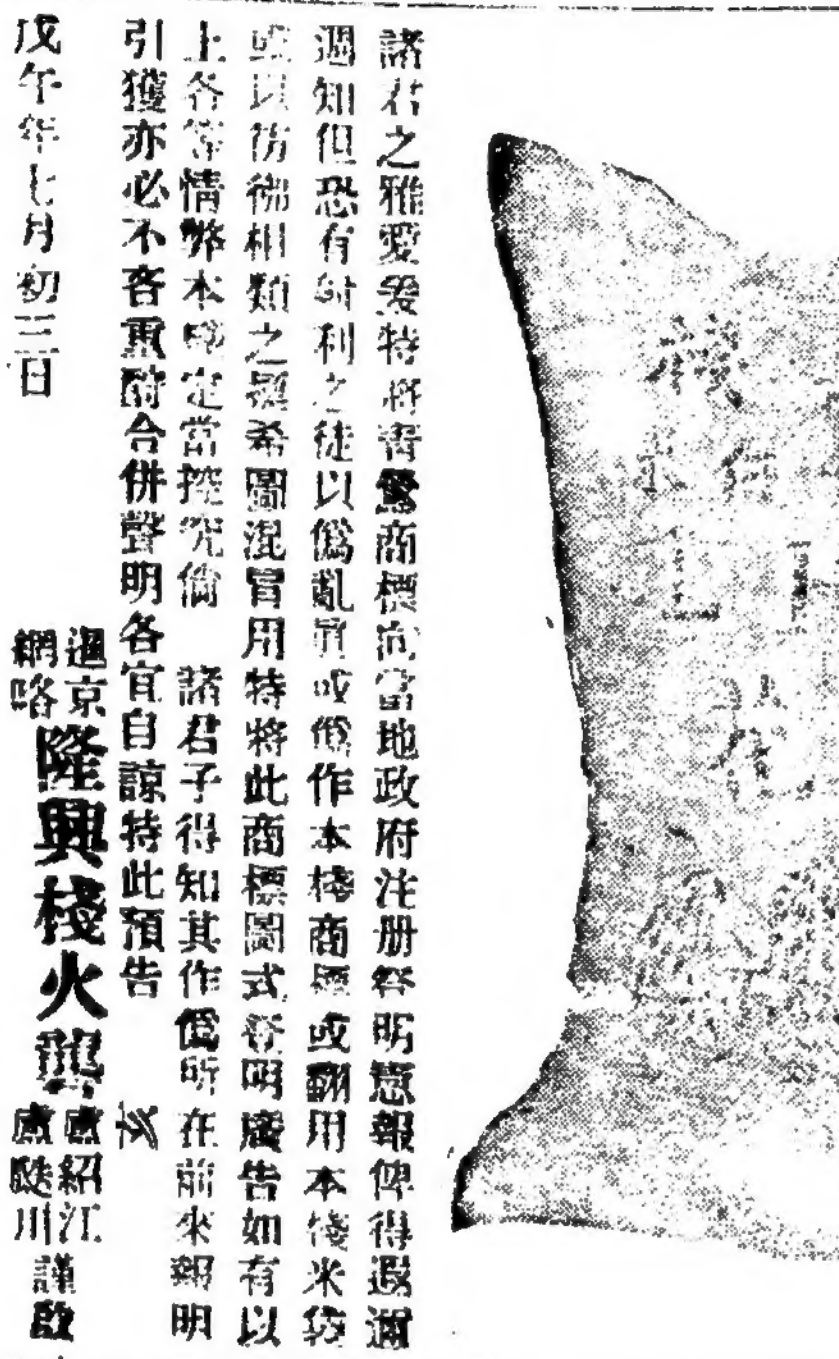 諸君之雅愛爰特將青鸞商標向當地政府注册登明憲報俾得遐邇
週知但恐有射利之徒以偽亂眞或偽作本棧商標或翻用本棧米袋
或以彷彿相類之標希圖混冒用特將此商標圖式登明廣告如有以
上各等情弊本號定當控究倘　諸君子得知其作僞所在前來報明
引獲亦必不吝重酧合併聲明各宜自諒特此預告
戊午年七月初三日
暹京
網咯
隆興棧火礱
盧紹江
盧颷川
謹啟